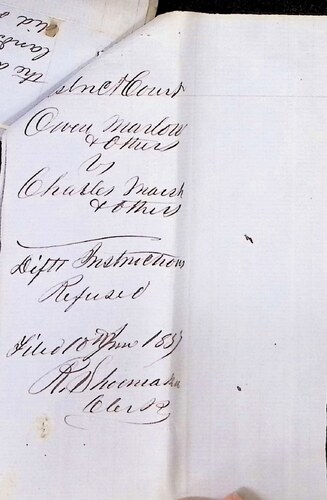 the
land
did
strict Court
Owen Marlow
& Others
vs
Charles Marsh
& Others
Difts Instructions
Refused
Filed 10th June 185
R. Shumaker
Clerk